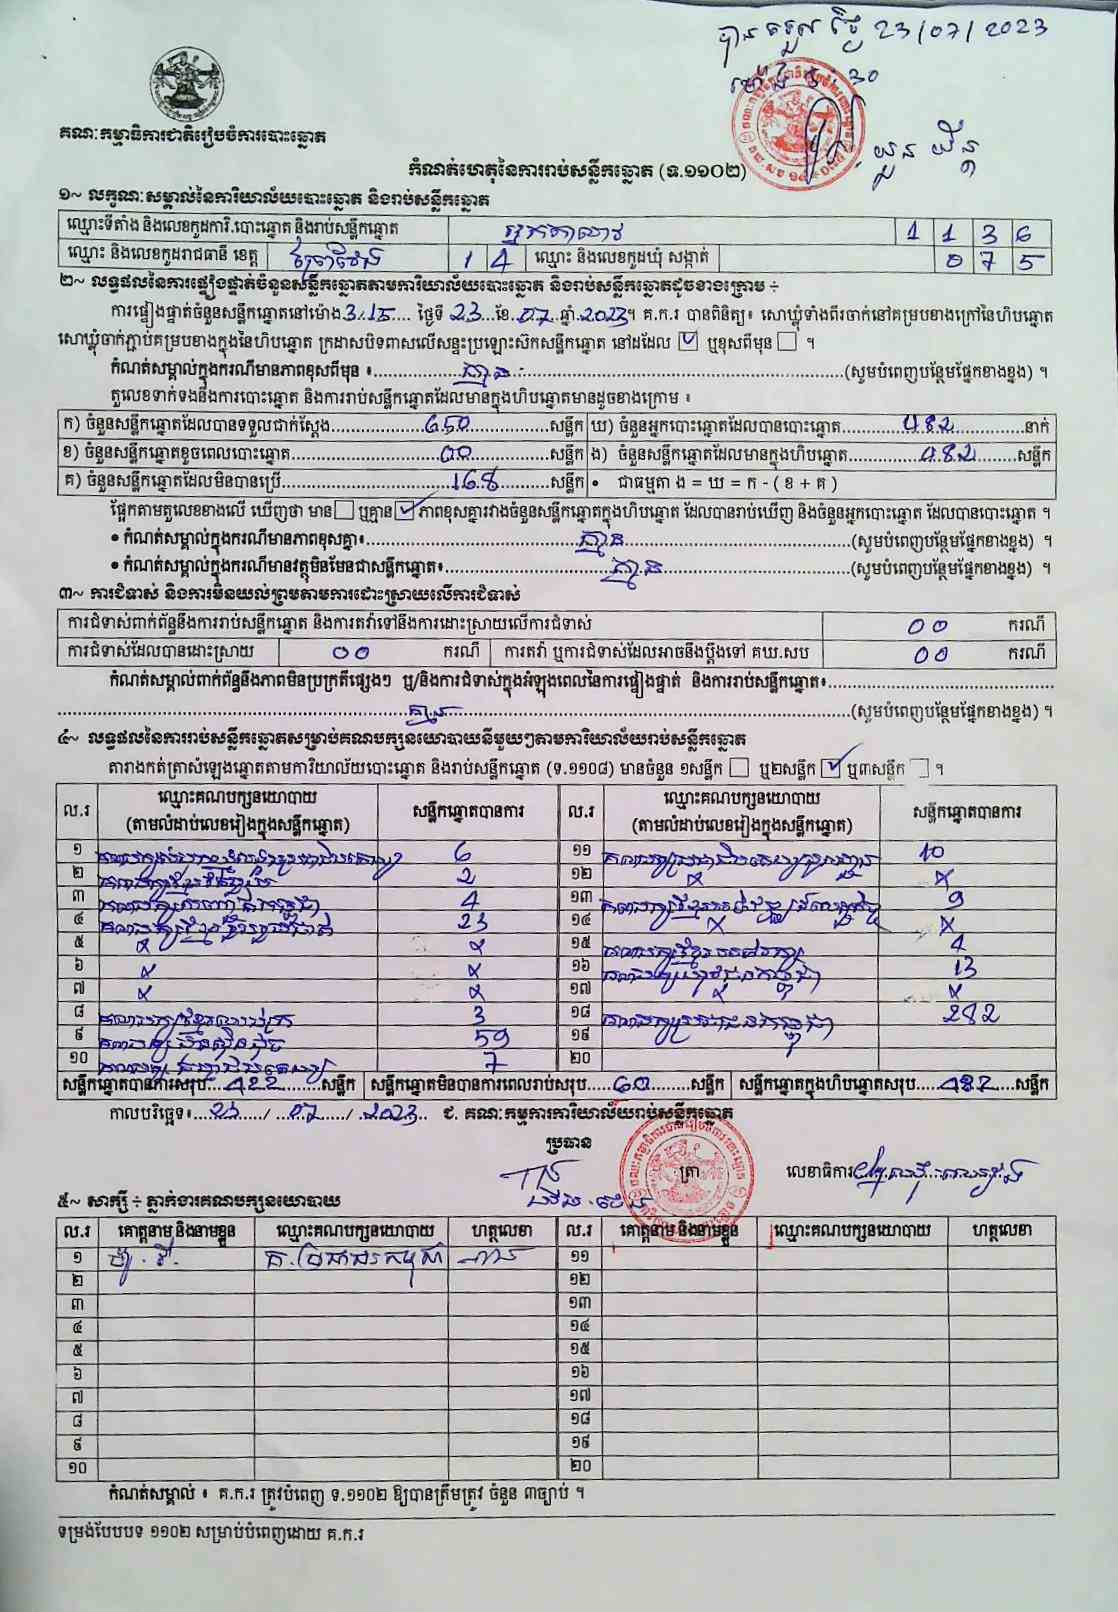 បានទទួល ថ្ងៃ 23/07/2023
30
គណៈកម្មាធិការជាតិរៀបចំការបោះឆ្នោត
កំណត់ហេតុនៃការរាប់សន្លឹកឆ្នោត (ទ.១១០២)
១~ លក្ខណៈសម្គាល់នៃការិយាល័យបោះឆ្នោត និងរាប់សន្លឹកឆ្នោត
ឈ្មោះទីតាំង និងលេខកូដការិ.បោះឆ្នោត និងរាប់សន្លឹកឆ្នោត 1 1 3 6
ឈ្មោះ និងលេខកូដរាជធានី ខេត្ត ព្រៃវែង 1 4 ឈ្មោះ និងលេខកូដឃុំ សង្កាត់ 0 7 5
២~ លទ្ធផលនៃការផ្ទៀងផ្ទាត់ចំនួនសន្លឹកឆ្នោតតាមការិយាល័យបោះឆ្នោត និងរាប់សន្លឹកឆ្នោតដូចខាងក្រោម ÷
ការផ្ទៀងផ្ទាត់ចំនួនសន្លឹកឆ្នោតនៅម៉ោង 3:15 ថ្ងៃទី 23 ខែ 07 ឆ្នាំ 2023។ គ.ក.រ បានពិនិត្យ៖ សោឃ្លុំទាំងពីរចាក់នៅគម្របខាងក្រៅនៃហិបឆ្នោត
សោឃ្លុំចាក់ភ្ជាប់គម្របខាងក្នុងនៃហិបឆ្នោត ក្រដាសបិទពាសលើសន្ទះប្រឡោះសិកសន្លឹកឆ្នោត នៅដដែល ☑ ឬខុសពីមុន ☐ ។
កំណត់សម្គាល់ក្នុងករណីមានភាពខុសពីមុន ៖ គ្មាន (សូមបំពេញបន្ថែមផ្នែកខាងខ្នង) ។
តួលេខទាក់ទងនឹងការបោះឆ្នោត និងការរាប់សន្លឹកឆ្នោតដែលមានក្នុងហិបឆ្នោតមានដូចខាងក្រោម ៖
ក) ចំនួនសន្លឹកឆ្នោតដែលបានទទួលជាក់ស្តែង 650 សន្លឹក ឃ) ចំនួនអ្នកបោះឆ្នោតដែលបានបោះឆ្នោត 482 នាក់
ខ) ចំនួនសន្លឹកឆ្នោតខូចពេលបោះឆ្នោត 00 សន្លឹក ង) ចំនួនសន្លឹកឆ្នោតដែលមានក្នុងហិបឆ្នោត 482 សន្លឹក
គ) ចំនួនសន្លឹកឆ្នោតដែលមិនបានប្រើ 168 សន្លឹក • ជាធម្មតា ង = ឃ = ក - ( ខ + គ )
ផ្អែកតាមតួលេខខាងលើ ឃើញថា មាន ☐ ឬគ្មាន ☑ ភាពខុសគ្នារវាងចំនួនសន្លឹកឆ្នោតក្នុងហិបឆ្នោត ដែលបានរាប់ឃើញ និងចំនួនអ្នកបោះឆ្នោត ដែលបានបោះឆ្នោត ។
• កំណត់សម្គាល់ក្នុងករណីមានភាពខុសគ្នា៖ គ្មាន (សូមបំពេញបន្ថែមផ្នែកខាងខ្នង) ។
• កំណត់សម្គាល់ក្នុងករណីមានវត្ថុមិនមែនជាសន្លឹកឆ្នោត៖ គ្មាន (សូមបំពេញបន្ថែមផ្នែកខាងខ្នង) ។
៣~ ការជំទាស់ និងការមិនយល់ព្រមតាមការដោះស្រាយលើការជំទាស់
ការជំទាស់ពាក់ព័ន្ធនឹងការរាប់សន្លឹកឆ្នោត និងការតវ៉ាទៅនឹងការដោះស្រាយលើការជំទាស់ 00 ករណី
ការជំទាស់ដែលបានដោះស្រាយ 00 ករណី ការតវ៉ា ឬការជំទាស់ដែលអាចនឹងប្តឹងទៅ គឃ.សប 00 ករណី
កំណត់សម្គាល់ពាក់ព័ន្ធនឹងភាពមិនប្រក្រតីផ្សេងៗ ឬ/និងការជំទាស់ក្នុងអំឡុងពេលនៃការផ្ទៀងផ្ទាត់ និងការរាប់សន្លឹកឆ្នោត៖
គ្មាន (សូមបំពេញបន្ថែមផ្នែកខាងខ្នង) ។
៤~ លទ្ធផលនៃការរាប់សន្លឹកឆ្នោតសម្រាប់គណបក្សនយោបាយនីមួយៗតាមការិយាល័យរាប់សន្លឹកឆ្នោត
តារាងកត់ត្រាសំឡេងឆ្នោតតាមការិយាល័យបោះឆ្នោត និងរាប់សន្លឹកឆ្នោត (ទ.១១០៨) មានចំនួន ១សន្លឹក ☐ ឬ២សន្លឹក ☑ ឬ៣សន្លឹក ☐ ។
ល.រ ឈ្មោះគណបក្សនយោបាយ (តាមលំដាប់លេខរៀងក្នុងសន្លឹកឆ្នោត) សន្លឹកឆ្នោតបានការ ល.រ ឈ្មោះគណបក្សនយោបាយ (តាមលំដាប់លេខរៀងក្នុងសន្លឹកឆ្នោត) សន្លឹកឆ្នោតបានការ
១ 6 ១១ 10
២ 2 ១២ x x
៣ 4 ១៣ 9
៤ 23 ១៤ x x
៥ x x ១៥ 4
៦ x x ១៦ 13
៧ x x ១៧ x x
៨ 3 ១៨ គណបក្សប្រជាជនកម្ពុជា 282
៩ 59 ១៩
១០ 7 ២០
សន្លឹកឆ្នោតបានការសរុប 422 សន្លឹក សន្លឹកឆ្នោតមិនបានការពេលរាប់សរុប 60 សន្លឹក សន្លឹកឆ្នោតក្នុងហិបឆ្នោតសរុប 482 សន្លឹក
កាលបរិច្ឆេទ៖ 23 / 07 / 2023 ជ. គណៈកម្មការការិយាល័យរាប់សន្លឹកឆ្នោត
ប្រធាន ត្រា លេខាធិការ
៥~ សាក្សី ÷ ភ្នាក់ងារគណបក្សនយោបាយ
ល.រ គោត្តនាម និងនាមខ្លួន ឈ្មោះគណបក្សនយោបាយ ហត្ថលេខា ល.រ គោត្តនាម និងនាមខ្លួន ឈ្មោះគណបក្សនយោបាយ ហត្ថលេខា
១ គ.ប្រជាជនកម្ពុជា ១១
២ ១២
៣ ១៣
៤ ១៤
៥ ១៥
៦ ១៦
៧ ១៧
៨ ១៨
៩ ១៩
១០ ២០
កំណត់សម្គាល់ ៖ គ.ក.រ ត្រូវបំពេញ ទ.១១០២ ឱ្យបានត្រឹមត្រូវ ចំនួន ៣ច្បាប់ ។
ទម្រង់បែបបទ ១១០២ សម្រាប់បំពេញដោយ គ.ក.រ